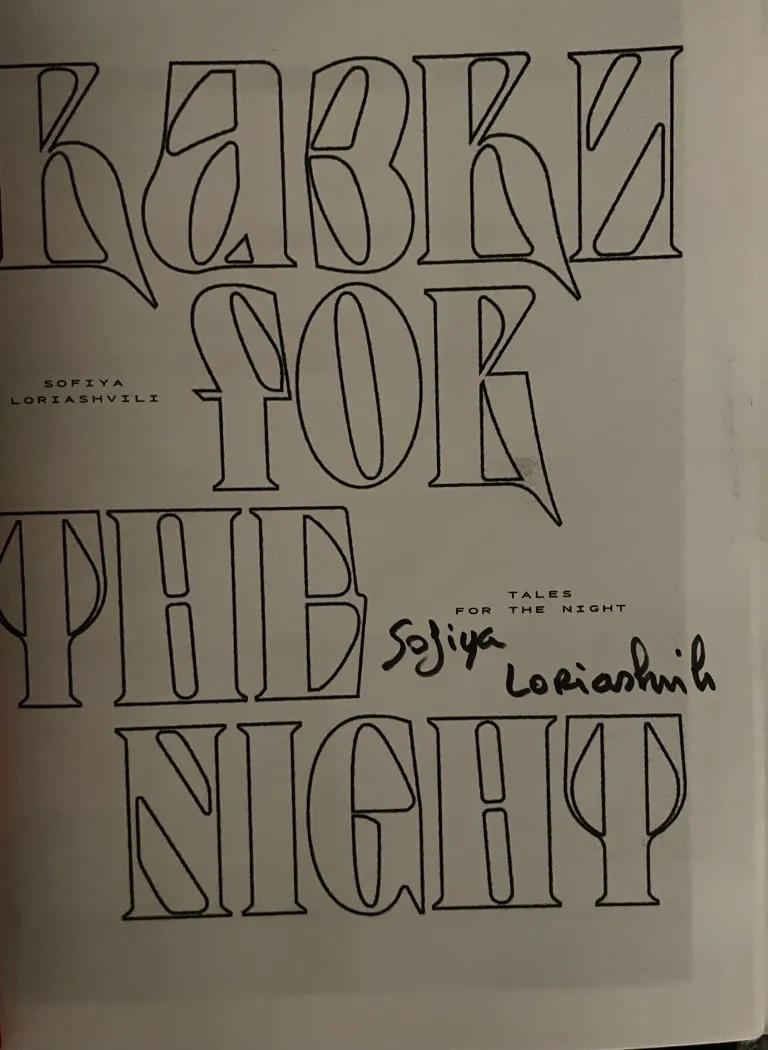 КАЗКИ
FOR
SOFIYA
LORIASHVILI
THE
TALES
FOR THE NIGHT
Sofiya
Loriashvili
NIGHT